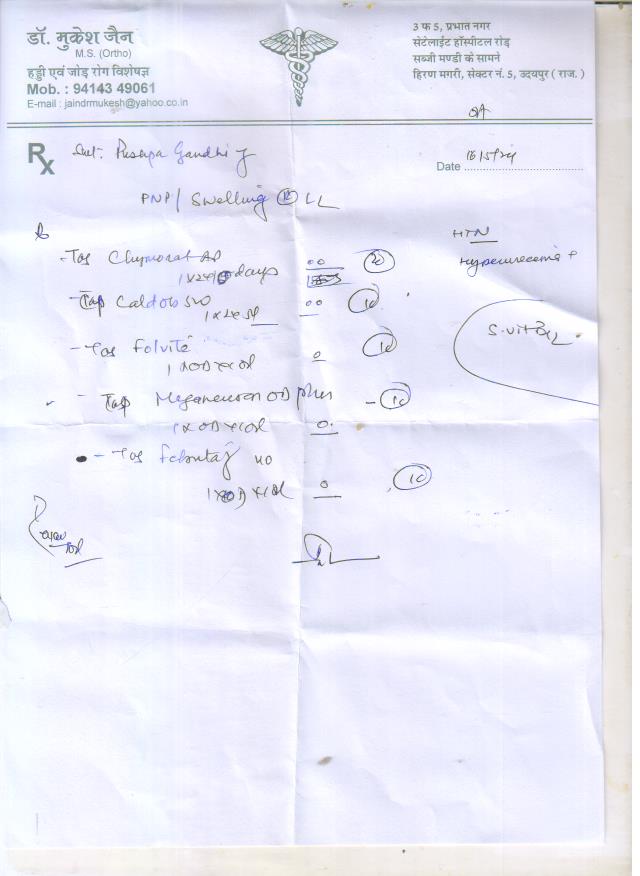 डॉ. मुकेश जैन
M.S. (Ortho)
हड्डी एवं जोड़ रोग विशेषज्ञ
Mob. : 94143 49061
E-mail : jaindrmukesh@yahoo.co.in
3 फ 5, प्रभात नगर
सेटेलाईट हॉस्पीटल रोड़
सब्जी मण्डी के सामने
हिरण मगरी, सेक्टर नं. 5, उदयपुर ( राज. )
Rx
Smt. Puspa Gandhi
Date 16/5/24
PNP/ Swelling LL
HTN
Hyperuricemia
- Tab Chymoral AP
days 20
- Tab Caldob 500
10
S. Vit B12
- Tab Folvite
1 x OD x 10d 0 10
- Tab Meganeuron OD plus - 10
1 x OD x 10d 0
- Tab Febutaz 40
1 x OD x 10d 0 10